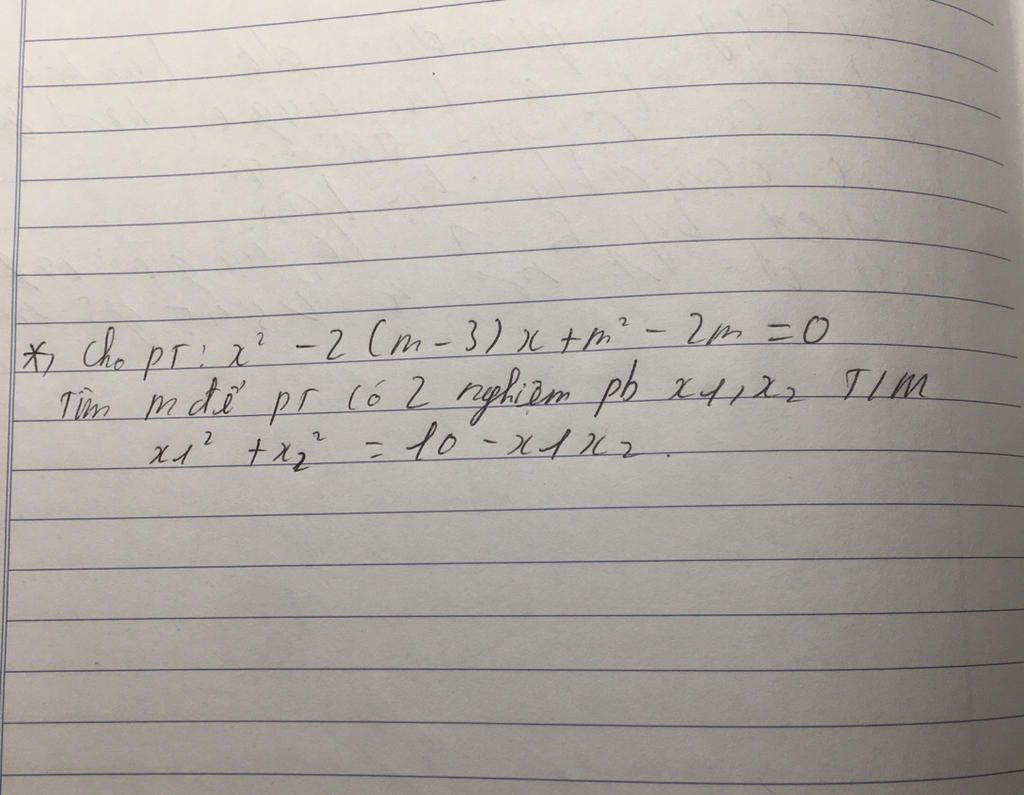 *, Cho pT: x² - 2 (m - 3) x + m² - 2m = 0
Tìm m để pT có 2 nghiệm pb x1, x2 T/M
x1² + x2² = 10 - x1x2.